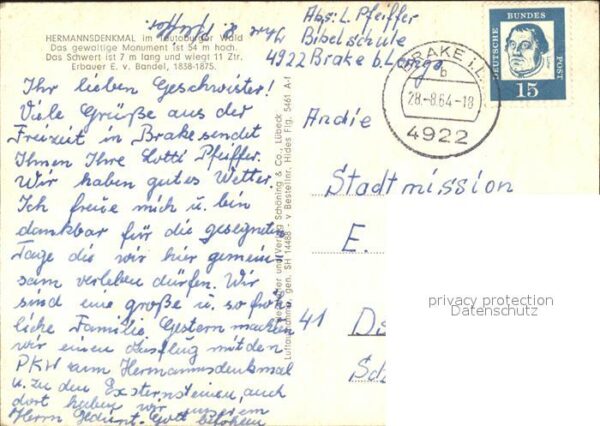 HERMANNSDENKMAL im Teutoburger Wald
Das gewaltige Monument ist 54 m hoch.
Das Schwert ist 7 m lang und wiegt 11 Ztr.
Erbauer E. v. Bandel, 1838-1875.
Ihr lieben Geschwister!
Viele Grüße aus der
Freizeit in Brake sendet
Ihnen Ihre Lotti Pfeiffer.
Wir haben gutes Wetter.
Ich freue mich u. bin
dankbar für die gesegneten
Tage die wir hier gemein
sam verleben dürfen. Wir
sind eine große u. so fröh
liche Familie. Gestern machten
wir einen Ausflug mit den
PKW zum Hermannsdenkmal
u. zu den Externsteinen, auch
dort haben wir unserem
Herrn gedient. Gott befohlen
Schöning & Co., Lübeck
Luftaufnahme gen. SH 14488 - v Bestellnr. Hides Flg. 5461 A-f
Abs: L. Pfeiffer
Bibelschule
4922 Brake b. Lemgo
BRAKE i. L.
b
28.-8.64-18
4922
DEUTSCHE BUNDES POST
15
An die
Stadtmission
E.
41 D
privacy protection
Datenschutz